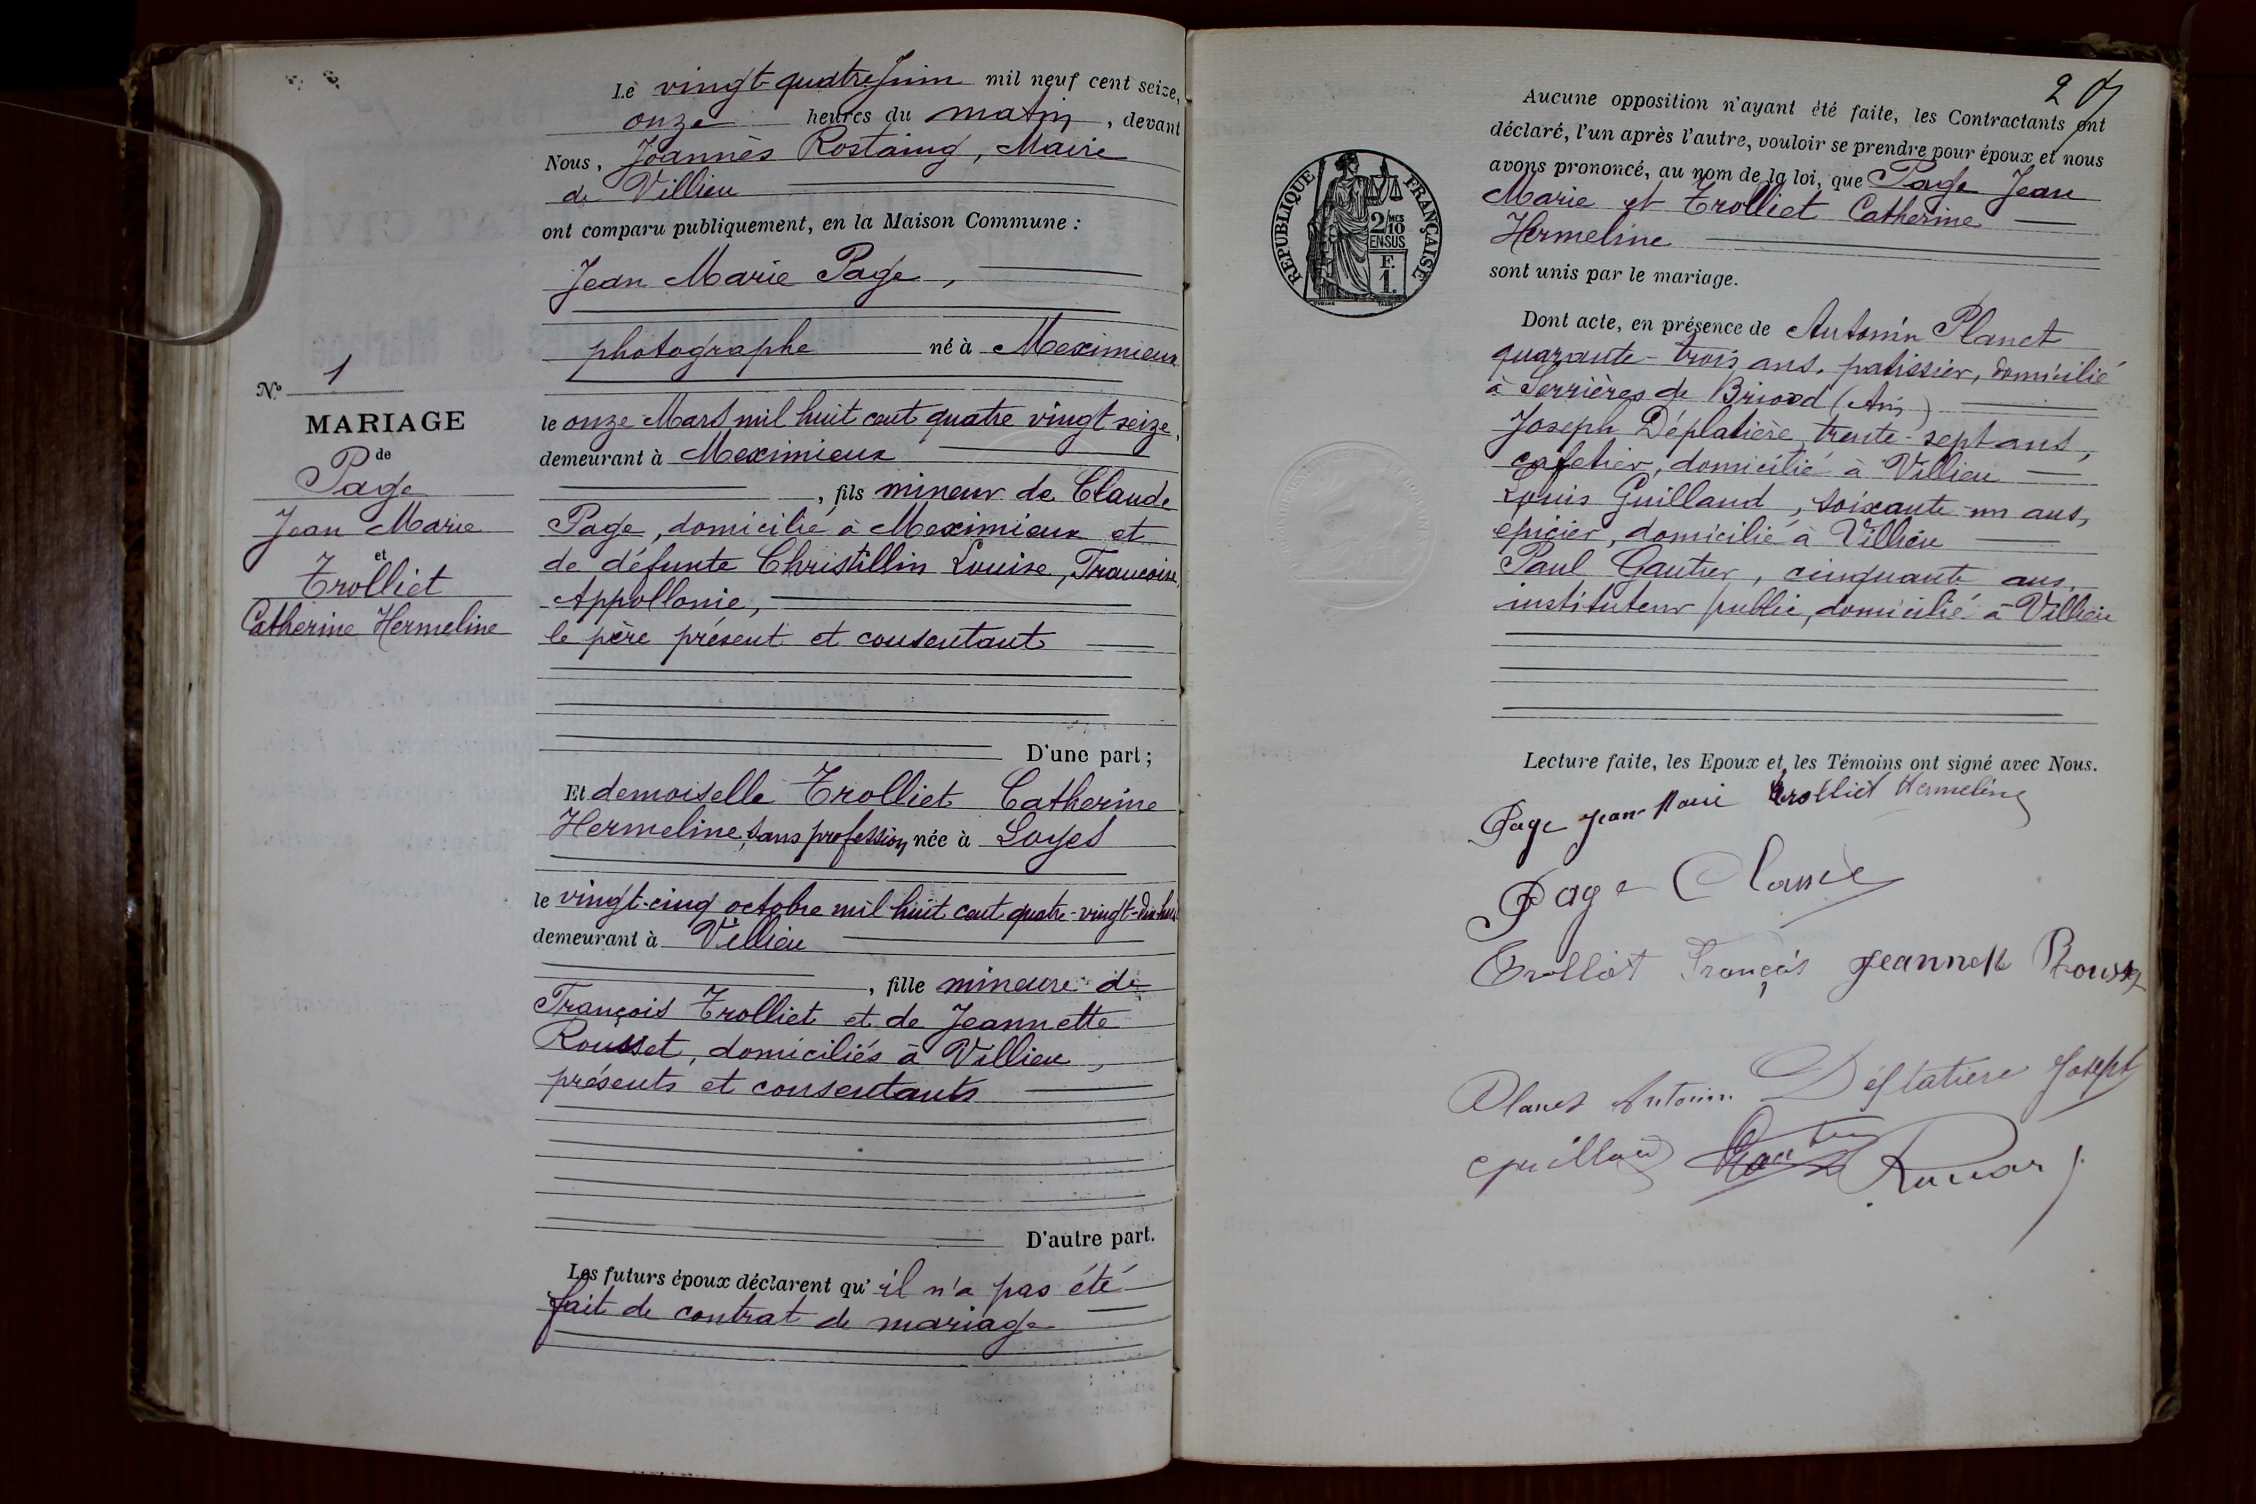 N° 1
MARIAGE
de
Page
Jean Marie
et
Trolliet
Catherine Hermeline
Le vingt-quatre Juin mil neuf cent seize,
onze heures du matin, devant
Nous, Joannès Rostaing, Maire
de Villieu
ont comparu publiquement, en la Maison Commune :
Jean Marie Page,
photographe né à Meximieux
le onze Mars mil huit cent quatre vingt seize,
demeurant à Meximieux
, fils mineur de Claude
Page, domicilié à Meximieux et
de défunte Christillin Louise, Françoise,
Appollonie,
le père présent et consentant
D'une part ;
Et demoiselle Trolliet Catherine
Hermeline, sans profession, née à Loyes
le vingt-cinq octobre mil huit cent quatre-vingt-dix-huit
demeurant à Villieu
, fille mineure de
François Trolliet et de Jeannette
Rousset, domiciliés à Villieu,
présents et consentants
D'autre part.
Les futurs époux déclarent qu'il n'a pas été
fait de contrat de mariage
2
Aucune opposition n'ayant été faite, les Contractants ont
déclaré, l'un après l'autre, vouloir se prendre pour époux et nous
avons prononcé, au nom de la loi, que Page Jean
Marie et Trolliet Catherine
Hermeline
sont unis par le mariage.
RÉPUBLIQUE FRANÇAISE
2/10 MES
EN SUS
F.
1.
Dont acte, en présence de Antonin Planet
quarante-trois ans, patissier, domicilié
à Serrières de Briord (Ain)
Joseph Déplatière, trente-sept ans,
cafetier, domicilié à Villieu
Louis Guilland, soixante-un ans,
épicier, domicilié à Villieu
Paul Gautier, cinquante ans,
instituteur public, domicilié à Villieu
Lecture faite, les Epoux et les Témoins ont signé avec Nous.
Page Jean-Marie Trolliet Hermeline
Page Claude
Trolliet François Jeannette Rousset
Planet Antonin Déplatière Joseph
Guilland Gautier